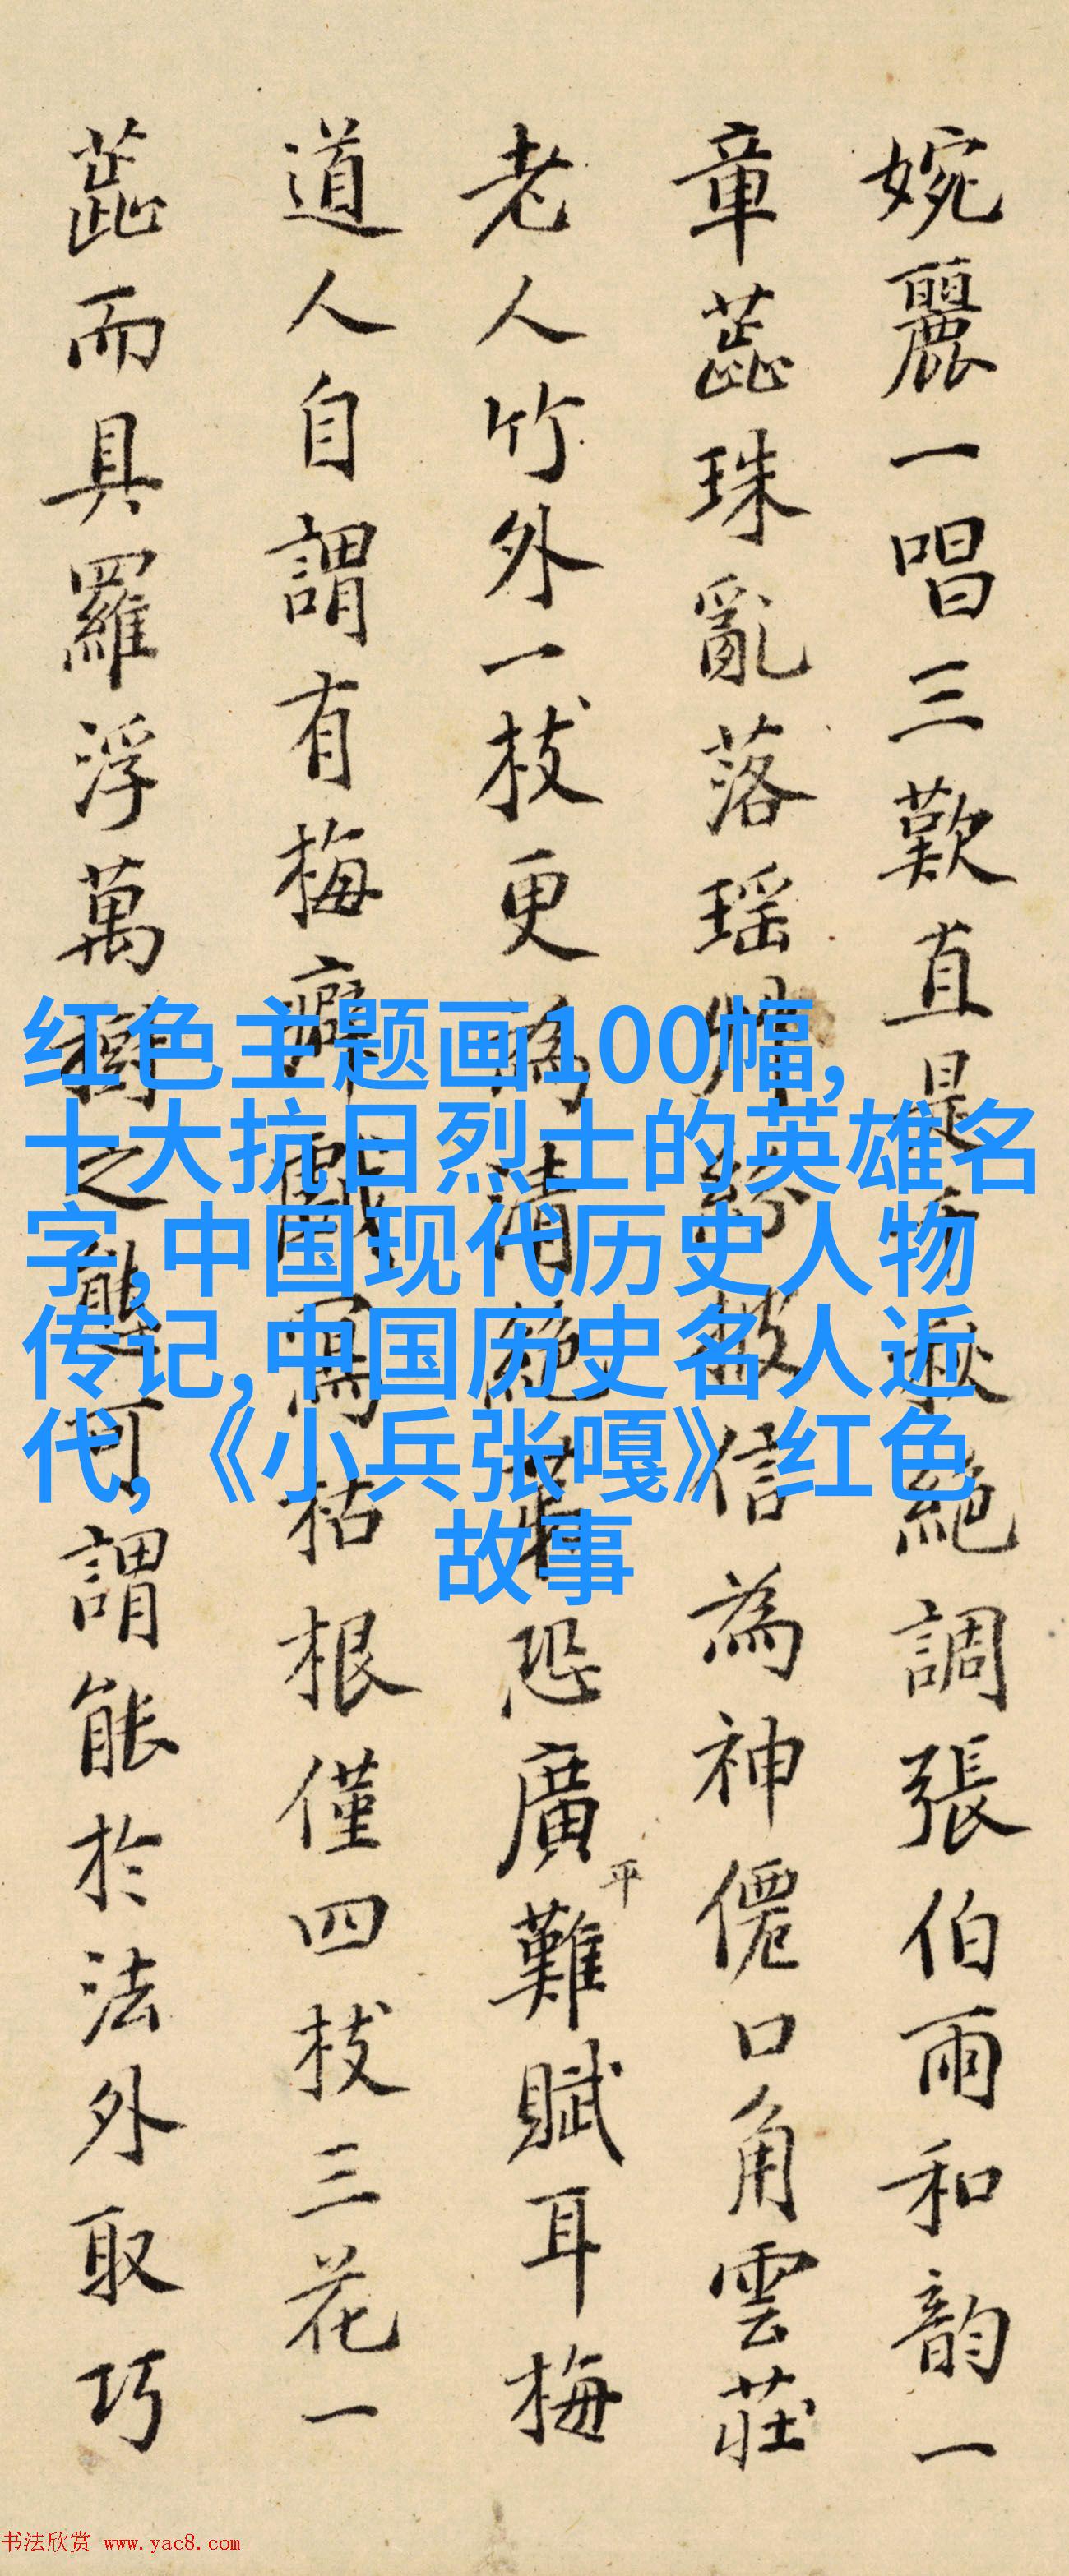 婉麗一唱三歎直是千秋絶調張伯雨和韵一
章蕋珠亂落瑶艸紛披信為神僊口角雲莊
老人竹外一枝更為清絶恐廣平難賦耳梅
道人自謂有梅癖戲寫枯根僅四枝三花一
蕋而具羅浮萬樹之態可謂能於法外取巧
红色主题画100幅,
十大抗日烈士的英雄名
字,中国现代历史人物
传记,中国历史名人近
代,《小兵张嘎》红色
故事
书法欣赏 www.yac8.com